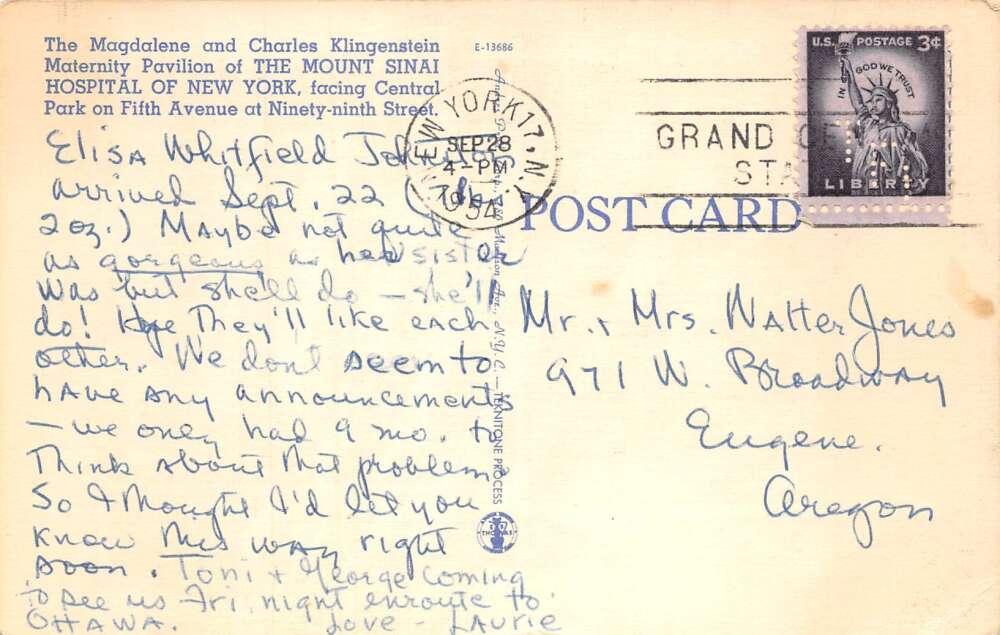 The Magdalene and Charles Klingenstein
Maternity Pavilion of THE MOUNT SINAI
HOSPITAL OF NEW YORK, facing Central
Park on Fifth Avenue at Ninety-ninth Street.
E-13686
Elisa Whitfield
arrived Sept. 22 (
2oz.) Maybe not quite
as gorgeous as her sister
was but she'll do - she'll
do! Hope They'll like each
other. We dont seem to
have any announcements
- we only had 9 mo. to
Think about that problem
So I thought I'd let you
know this way right
soon. Toni + George coming
to see us Fri. night enroute to
OTTAWA. Love - Laurie
Madison Ave., N.Y.C. - TEKNITONE PROCESS
NEW YORK 17 N.Y.
SEP 28
4-PM
1954
GRAND
STA
U.S. POSTAGE 3¢
IN GOD WE TRUST
LIBERTY
POST CARD
Mr. + Mrs. Walter Jones
971 W. Broadway
Eugene.
Oregon